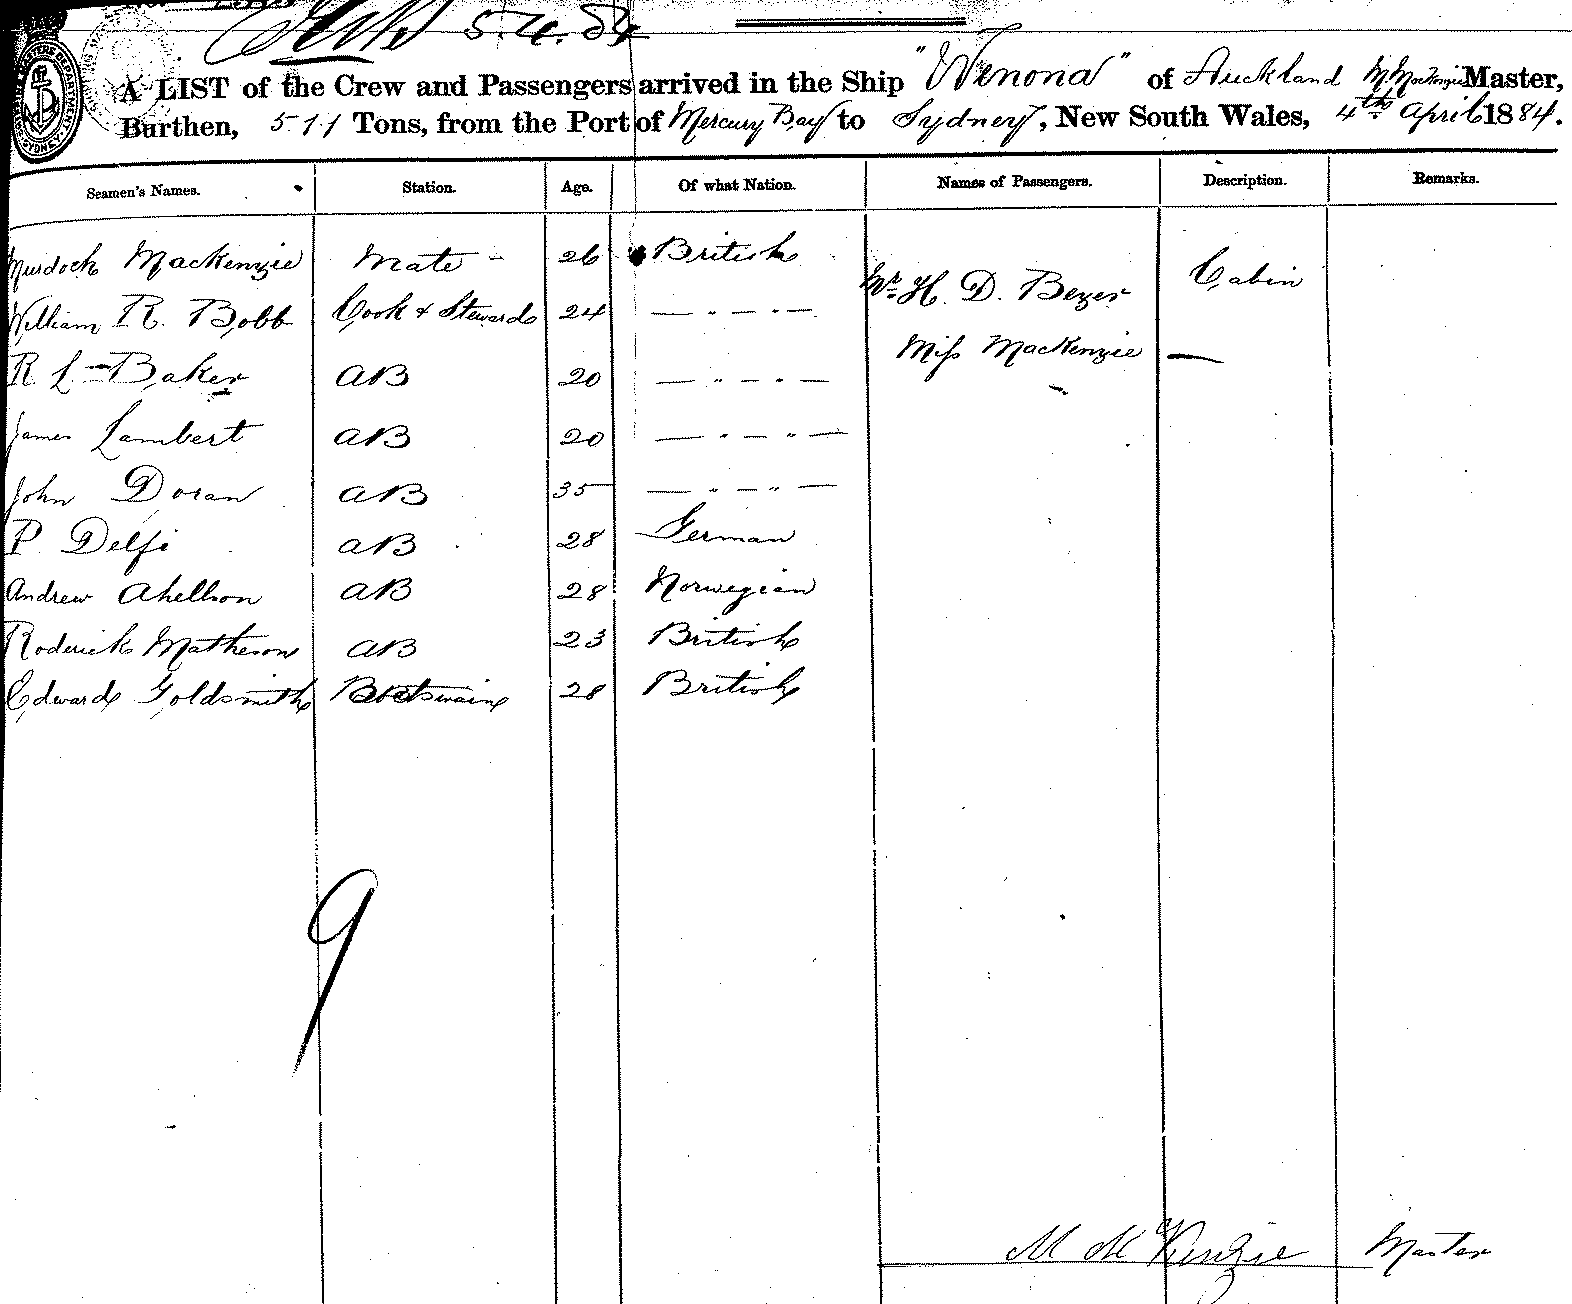 5.4.84
A LIST of the Crew and Passengers arrived in the Ship "Wenona" of Auckland M MacKenzie Master,
Burthen, 511 Tons, from the Port of Mercury Bay to Sydney, New South Wales, 4th April 1884.
Seamen's Names. Station. Age. Of what Nation. Names of Passengers. Description. Remarks.
Murdoch MacKenzie Mate - 26 British
Mr H. D. Beyer Cabin
William R. Bobb Cook & Steward 24 — " — " —
Miss MacKenzie —
R L Baker AB 20 — " — " —
James Lambert AB 20 — " — " —
John Doran AB 35 — " — " —
P Delfi AB 28 German
Andrew AB 28 Norwegian
Roderick Matheson AB 23 British
Edward Goldsmith Boatswain 28 British
9
M McKenzie Master